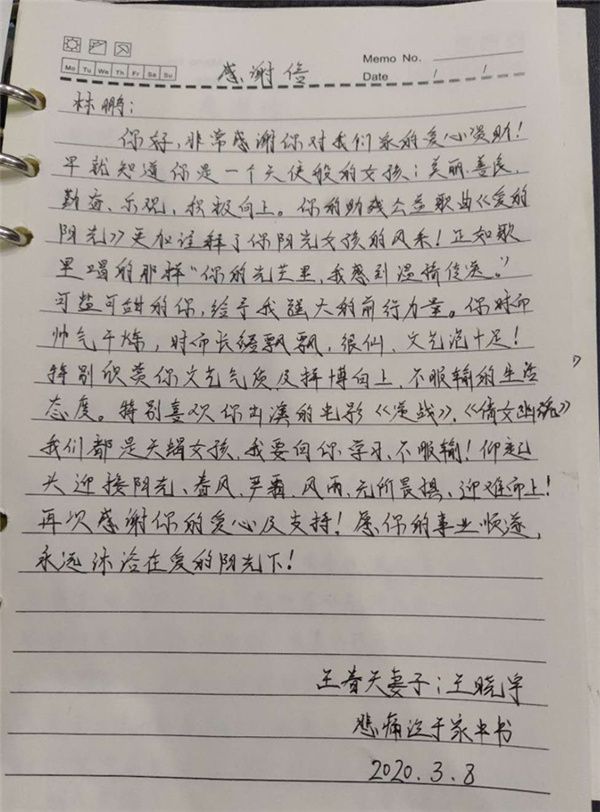 Mo Tu We Th Fr Sa Su
感谢信
Memo No.
Date 1 1
林鹏：
你好，非常感谢你对我们家的爱心资助！
早就知道你是一个天使般的女孩；美丽、善良、
勤奋、乐观，积极向上。你的助残公益歌曲《爱的
阳光》更加诠释了你阳光女孩的风采！正如歌
里唱的那样“你的光芒里，我感到温情传送。”
可盐可甜的你，给予我强大的前行力量。你时而
帅气干练，时而长裙飘飘，很仙、文艺范十足！
特别欣赏你文艺气质及拼博向上，不服输的生活
态度。特别喜欢你出演的电影《逆战》、《倩女幽魂》
我们都是天蝎女孩，我要向你学习，不服输！仰起
头迎接阳光，春风、严霜、风雨，无所畏惧，迎难而上！
再次感谢你的爱心及支持！愿你的事业顺遂，
永远沐浴在爱的阳光下！
王春天妻子：王晓宇
悲痛泣于家中书
2020.3.8